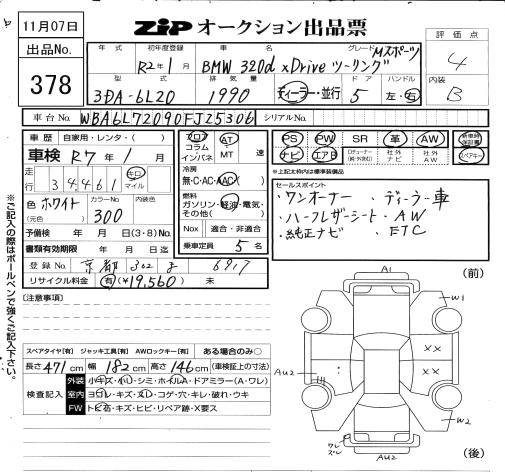 11月07日
ZiP オークション出品票
評価点
4
出品No.
378
年式
初年度登録
車名
グレード
R2年1月
BMW 320d xDrive ツーリング Mスポーツ
型式
排気量
ドア
ハンドル
内装
3DA-6L20
1990
ディーラー・並行
5
左・右
B
車台No.
WBA6L72090FJ25306
シリアルNo.
車歴 自家用・レンタ・( )
車検 R7年1月
走行 34,461 キロ マイル
色 ホワイト
(元色)
カラーNo
300
内装色
予備検 年 月 日(3・8)No.
書類有効期限 年 月 日迄
登録No. 京都 302 る 6917
リサイクル料金 有(¥19,560) 未
フロア
コラム
インパネ
AT
MT
速
冷房
無・C・AC・AAC
燃料
ガソリン・軽油・電気・
その他( )
Nox 適合・非適合
乗車定員 5名
PS PW SR 革 AW
新車時保証書
ナビ エアB
社外ナビ
社外AW
スペアキー
※上記太枠内は標準装備品
セールスポイント
・ワンオーナー ・ディーラー車
・ハーフレザーシート・AW
・純正ナビ ・ETC
※ご記入の際はボールペンで強くご記入下さい。
[注意事項]
スペアタイヤ[有] ジャッキ工具[有] AWロックキー[有] ある場合のみ○
長さ471cm 幅182cm 高さ146cm (車検証上の寸法)
検査記入
外装 小キズ・小U・シミ・ホイルA・ドアミラー(A・ワレ)
室内 ヨゴレ・キズ・スレ・コゲ・穴・キレ・破れ・ウキ
FW トビ石・キズ・ヒビ・リペア跡・X要ス
(前)
A1
W1
XX
AU2
XX
W2
ワレ
ズレ
AU2
(後)